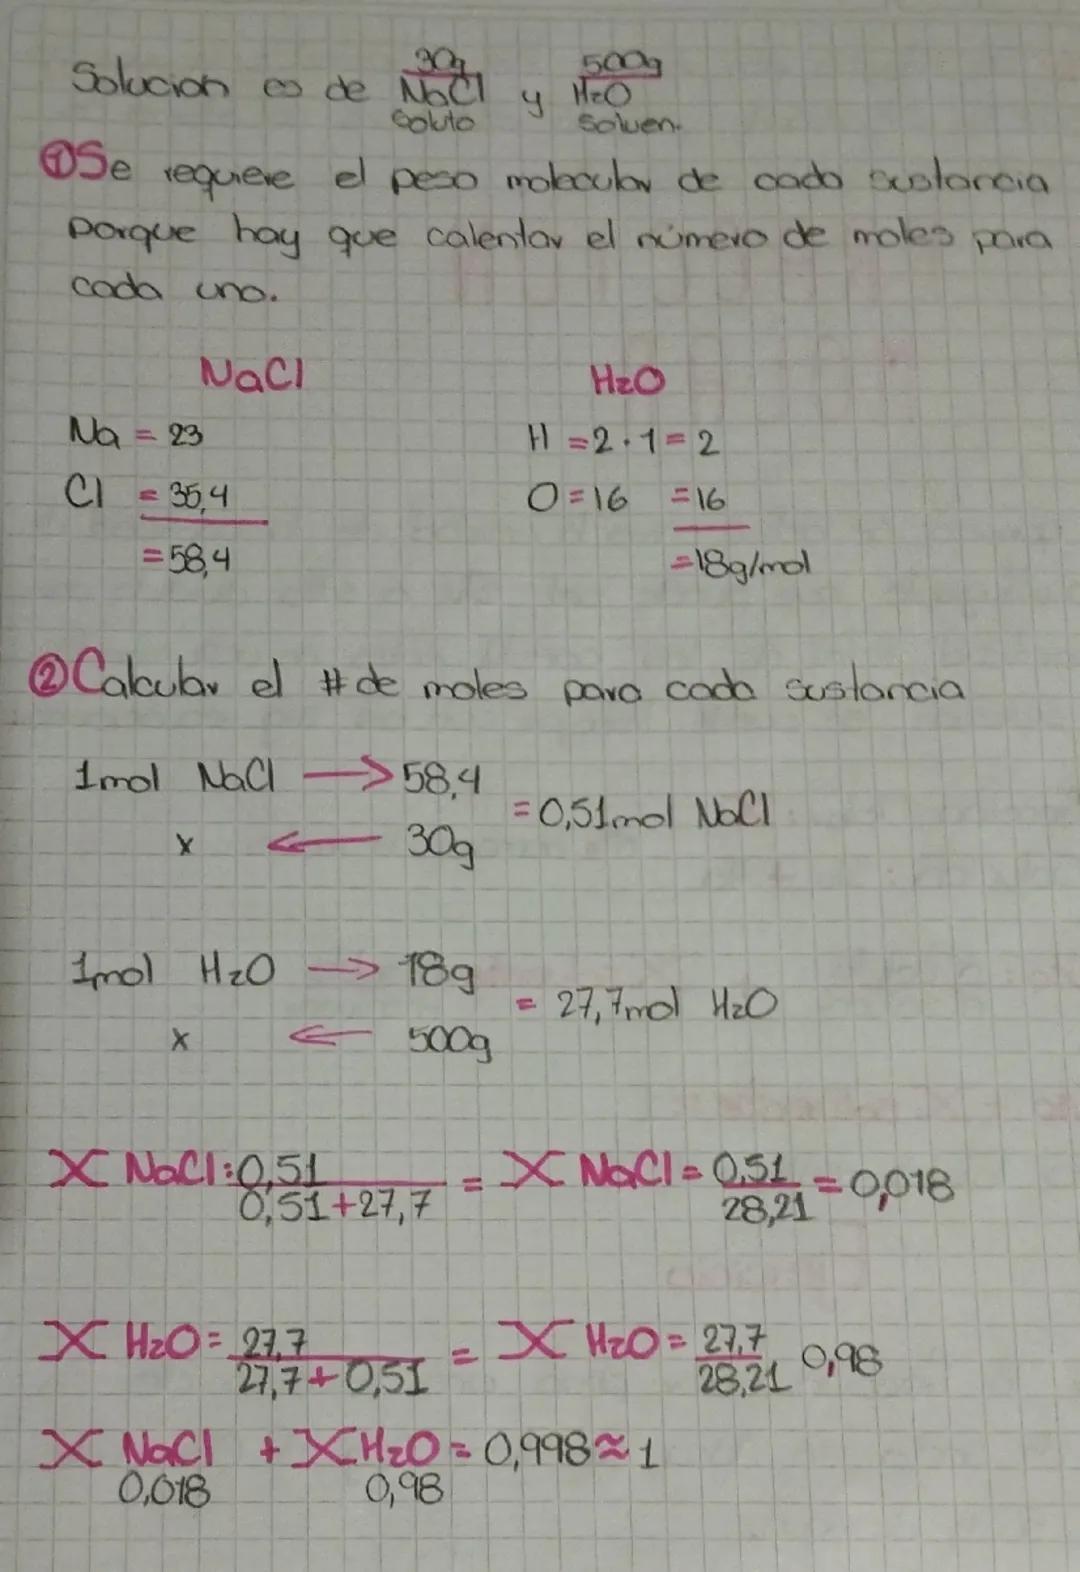 Solucion es de 30g NaCl y 500g H₂O
Soluto Solven.
①Se requiere el peso molecular de cada sustancia
porque hay que calentar el número de moles para
cada uno.
NaCl H₂O
Na = 23 H = 2 · 1 = 2
Cl = 35,4 O = 16 = 16
= 58,4 = 18g/mol
②Calcular el # de moles para cada sustancia
1mol NaCl → 58,4
= 0,51mol NaCl
x ← 30g
1mol H₂O → 18g
= 27,7mol H₂O
x ← 500g
X NaCl: 0,51 / 0,51+27,7 = X NaCl = 0,51 / 28,21 = 0,018
X H₂O = 27,7 / 27,7+0,51 = X H₂O = 27,7 / 28,21 0,98
X NaCl + X H₂O = 0,998 ≈ 1
0,018 0,98